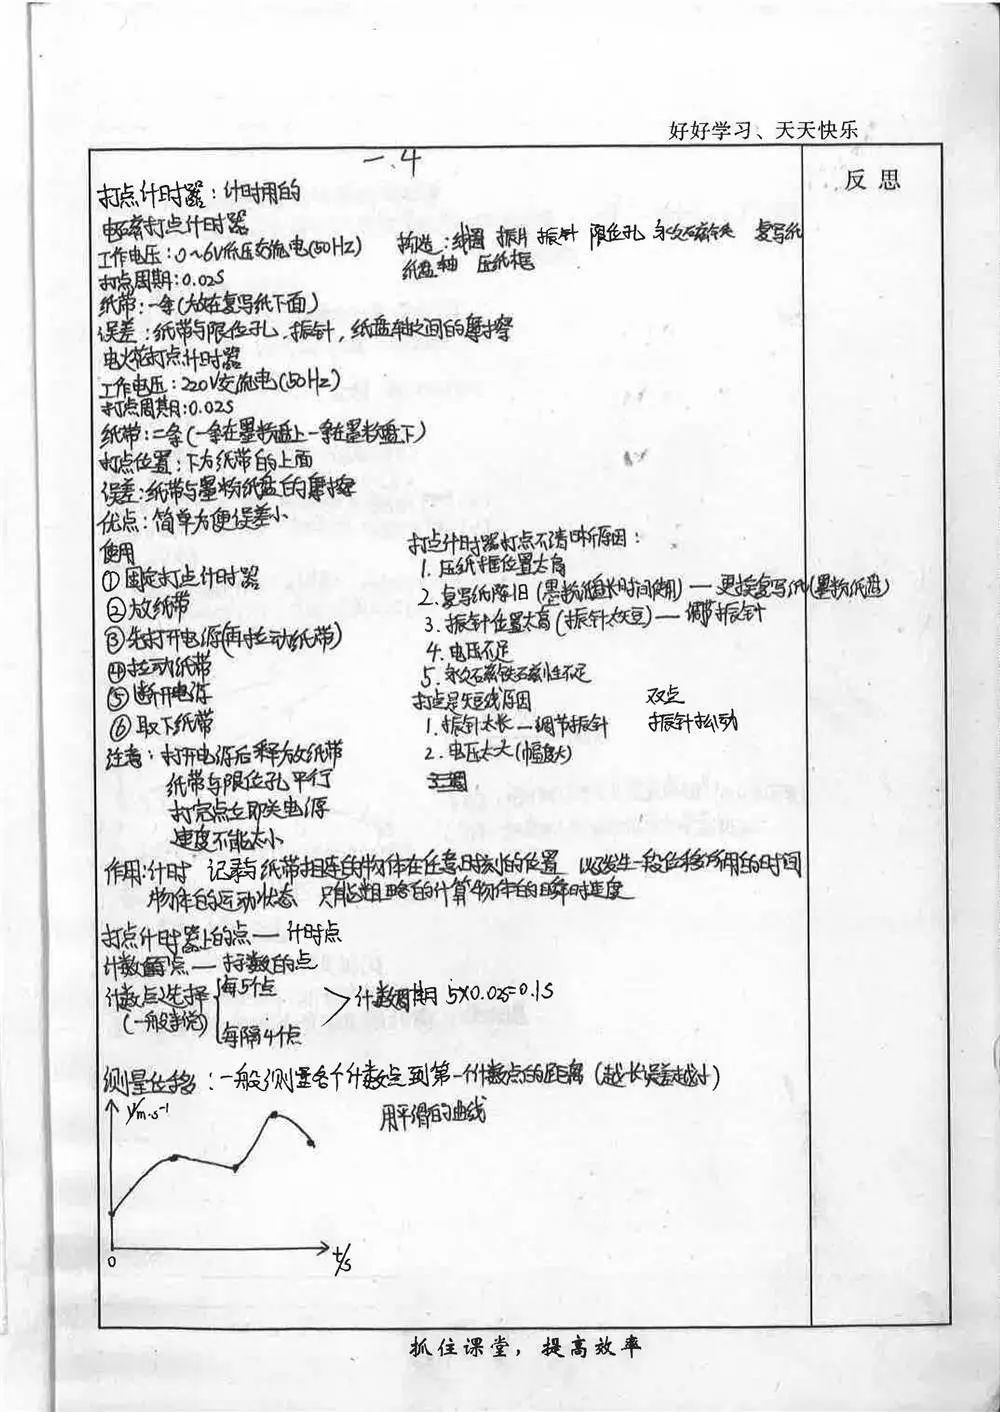 好好学习、天天快乐
反思
一.4
打点计时器：计时用的
电磁打点计时器
工作电压：0~6V低压交流电(50Hz)
构造：线圈 振片 振针 限位孔 永久磁铁 复写纸
纸盘轴 压纸框
打点周期：0.02S
纸带：一条(放在复写纸下面)
误差：纸带与限位孔、振针，纸盘轴之间的摩擦
电火花打点计时器
工作电压：220V交流电(50Hz)
打点周期：0.02S
纸带：二条(一条在墨粉盘上一条在墨粉盘下)
打点位置：下方纸带的上面
误差：纸带与墨粉纸盘的摩擦
优点：简单方便误差小
使用
①固定打点计时器
②放纸带
③先打开电源(再拉动纸带)
④拉动纸带
⑤断开电源
⑥取下纸带
注意：打开电源后释放纸带
纸带与限位孔平行
打完点立即关电源
速度不能太小
打点计时器打点不清晰原因：
1.压纸框位置太高
2.复写纸陈旧(墨粉纸盘长时间使用)—更换复写纸(墨粉纸盘)
3.振针位置太高(振针太短)—调节振针
4.电压不足
5.永久磁铁磁性不足
打点是短线原因
1.振针太长—调节振针
2.电压太大(幅度大)
双点
振针松动
作用：计时 记录与纸带相连的物体在任意时刻的位置 以及发生一段位移所用的时间
物体的运动状态 只能粗略的计算物体的瞬时速度
打点计时器上的点—计时点
计数点—待数的点
计数点选择
(一般来说)
每5个点
每隔4个点
计数周期 5×0.02S=0.1S
测量位移：一般测量各个计数点到第一计数点的距离(越长误差越小)
V/m·s⁻¹
用平滑的曲线
0
t/s
抓住课堂，提高效率